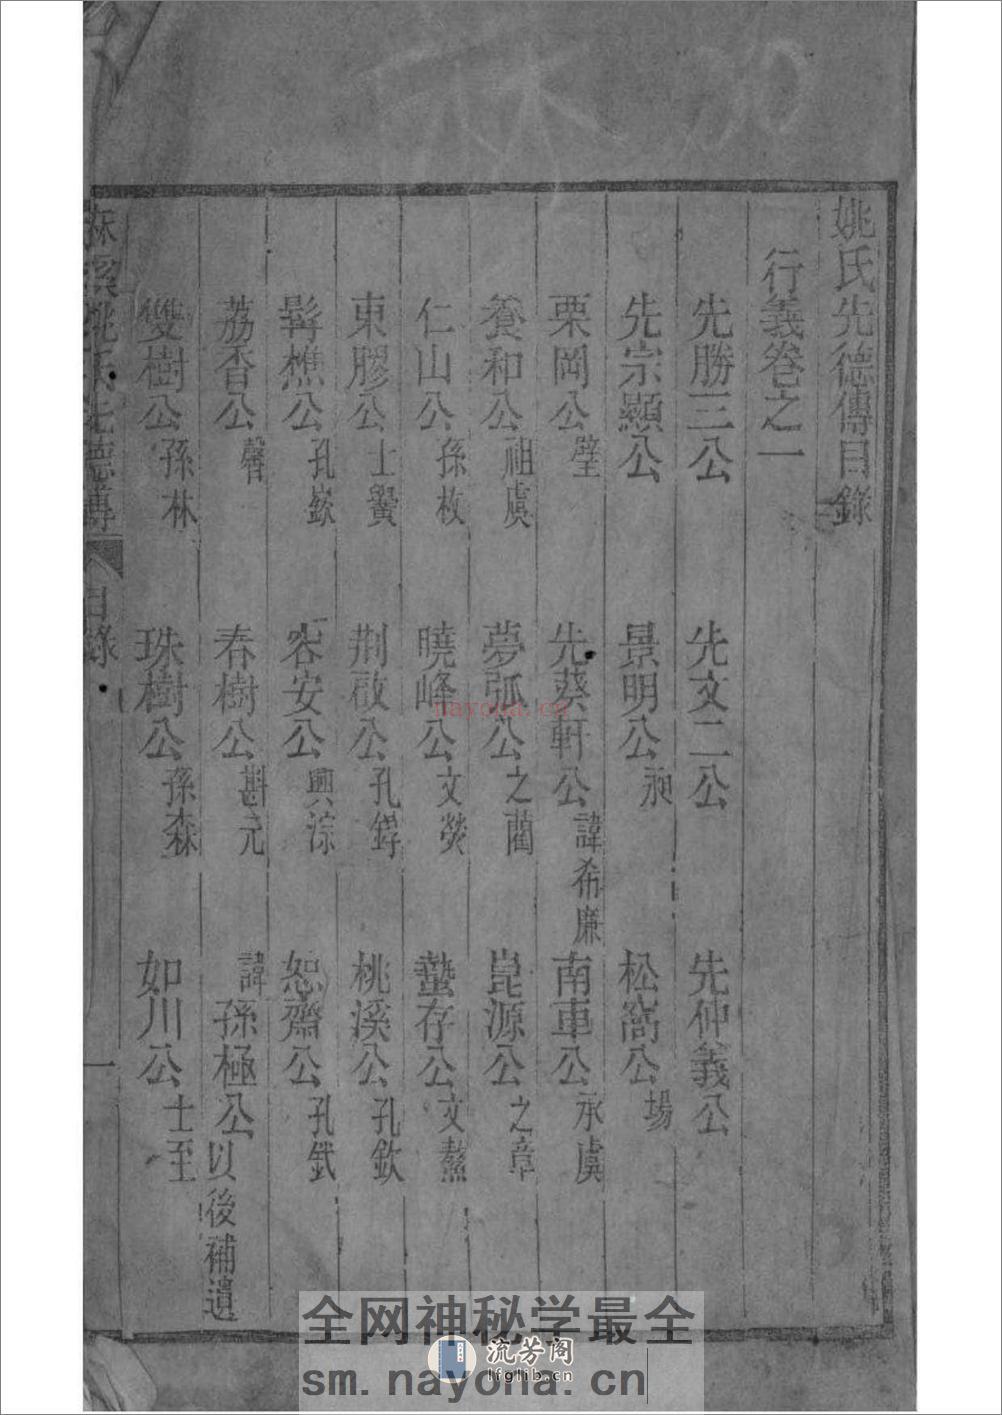 姚氏先德傳目錄
行義卷之一
先勝三公 先文二公 先仲義公
先宗顯公 景明公 昶 松窩公 場
栗岡公 璧 先葵軒公 諱希廉 南車公 承虞
養和公 祖虞 夢弧公 之藺 崑源公 之章
仁山公 孫枚 曉峰公 文熒 蟄存公 文熬
東膠公 士黌 荆啟公 孔錞 桃溪公 孔欽
髯樵公 孔嶔 容安公 興淙 恕齋公 孔鉽
荔香公 馨 春樹公 斟元 諱孫極公 以後補遺
雙樹公 孫林 珠樹公 孫森 如川公 士至
麻溪姚氏先德傳 目錄 一
nayona.cn
全网神秘学最全
流芳阁
lfglib.cn
sm.nayona.cn